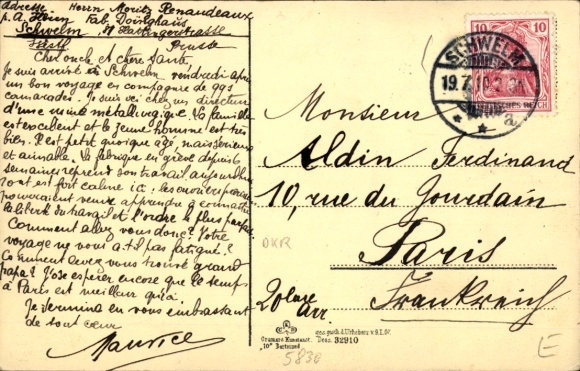 Adresse Herrn Moritz Renaudeaux
p. A. Fab. Döinghaus
Schwelm, Hattingerstrasse
Prusse
Cher oncle et chère tante
Je suis arrivé à Schwelm vendredi après
un bon voyage en compagnie de qqs
camarades. Je suis ici chez un directeur
d'une usine métallurgique. La famille
est excellent et le jeune homme est très
bien. Il est petit quoique âgé, mais sérieux
et aimable. La fabrique en grève depuis 6
semaines reprend son travail aujourd'hui
Tout est fort calme ici : les ouvriers parisiens
pourraient venir apprendre à connaître
la liberté du travail et l'ordre le plus parfait
Comment allez vous donc? Votre
voyage ne vous a t il pas fatigué?
Comment avez vous trouvé grand
papa? J'ose espérer encore que le temps
à Paris est meilleur qu'à
Je termine en vous embrassant
de tout cœur
Maurice
10 10
SCHWELM
19.7.
a
DEUTSCHES REICH
Monsieur
Aldin Ferdinand
10, rue du Jourdain
Paris
20ème arr. Frankreich
DKR
ges. gesch. d. Urheberr. v. 9.I.07.
Cramers Kunstanst. Dess. 32910
Dortmund
5830
E